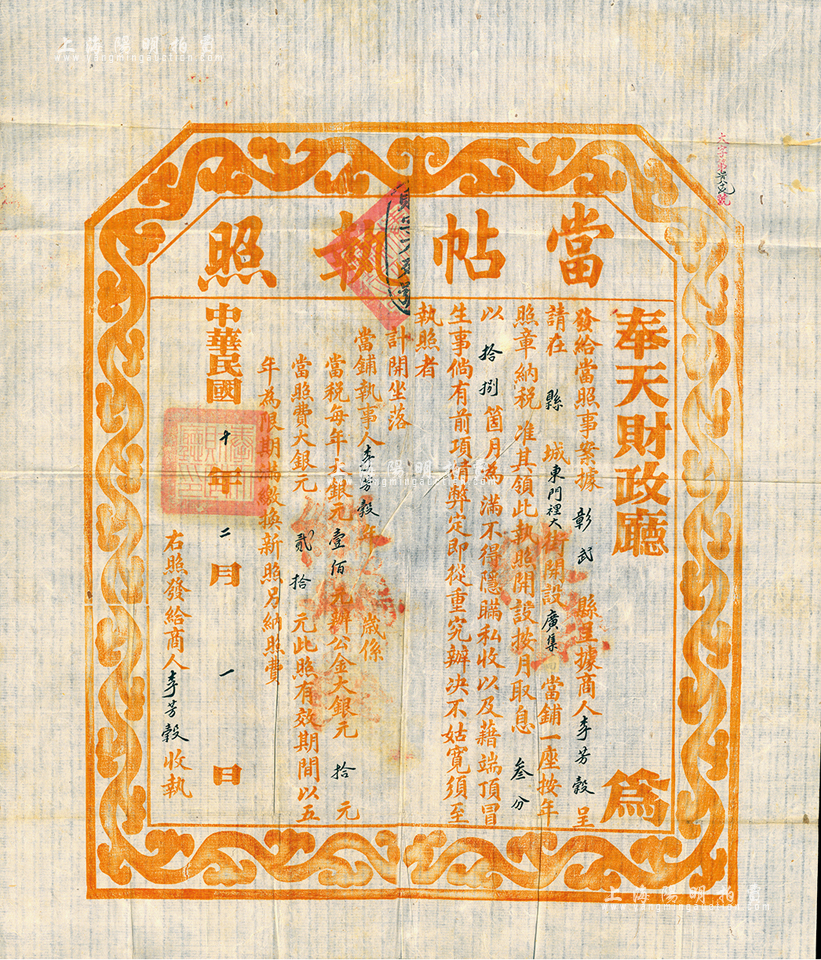 上海陽明拍賣
www.yangmingauction.com
當帖執照
奉天財政廳 為
發給當照事案據 彰武 縣呈據商人李芳穀呈
請在 縣 城東門裡大街開設廣集 當鋪一座按年
照章納稅准其領此執照開設按月取息 叁分
以拾捌箇月為滿不得隱瞞私收以及藉端頂冒
生事倘有前項情弊定即從重究辦決不姑寬須至
執照者
計開坐落
當鋪執事人李芳穀年 歲係
當稅每年大銀元壹佰元辦公金大銀元 拾 元
當照費大銀元 貳拾 元此照有效期間以五
年為限期滿繳換新照另納照費
中華民國十年二月一日
右照發給商人李芳穀收執
上海陽明拍賣
www.yangmingauction.com
上海陽明拍賣
www.yangmingauction.com